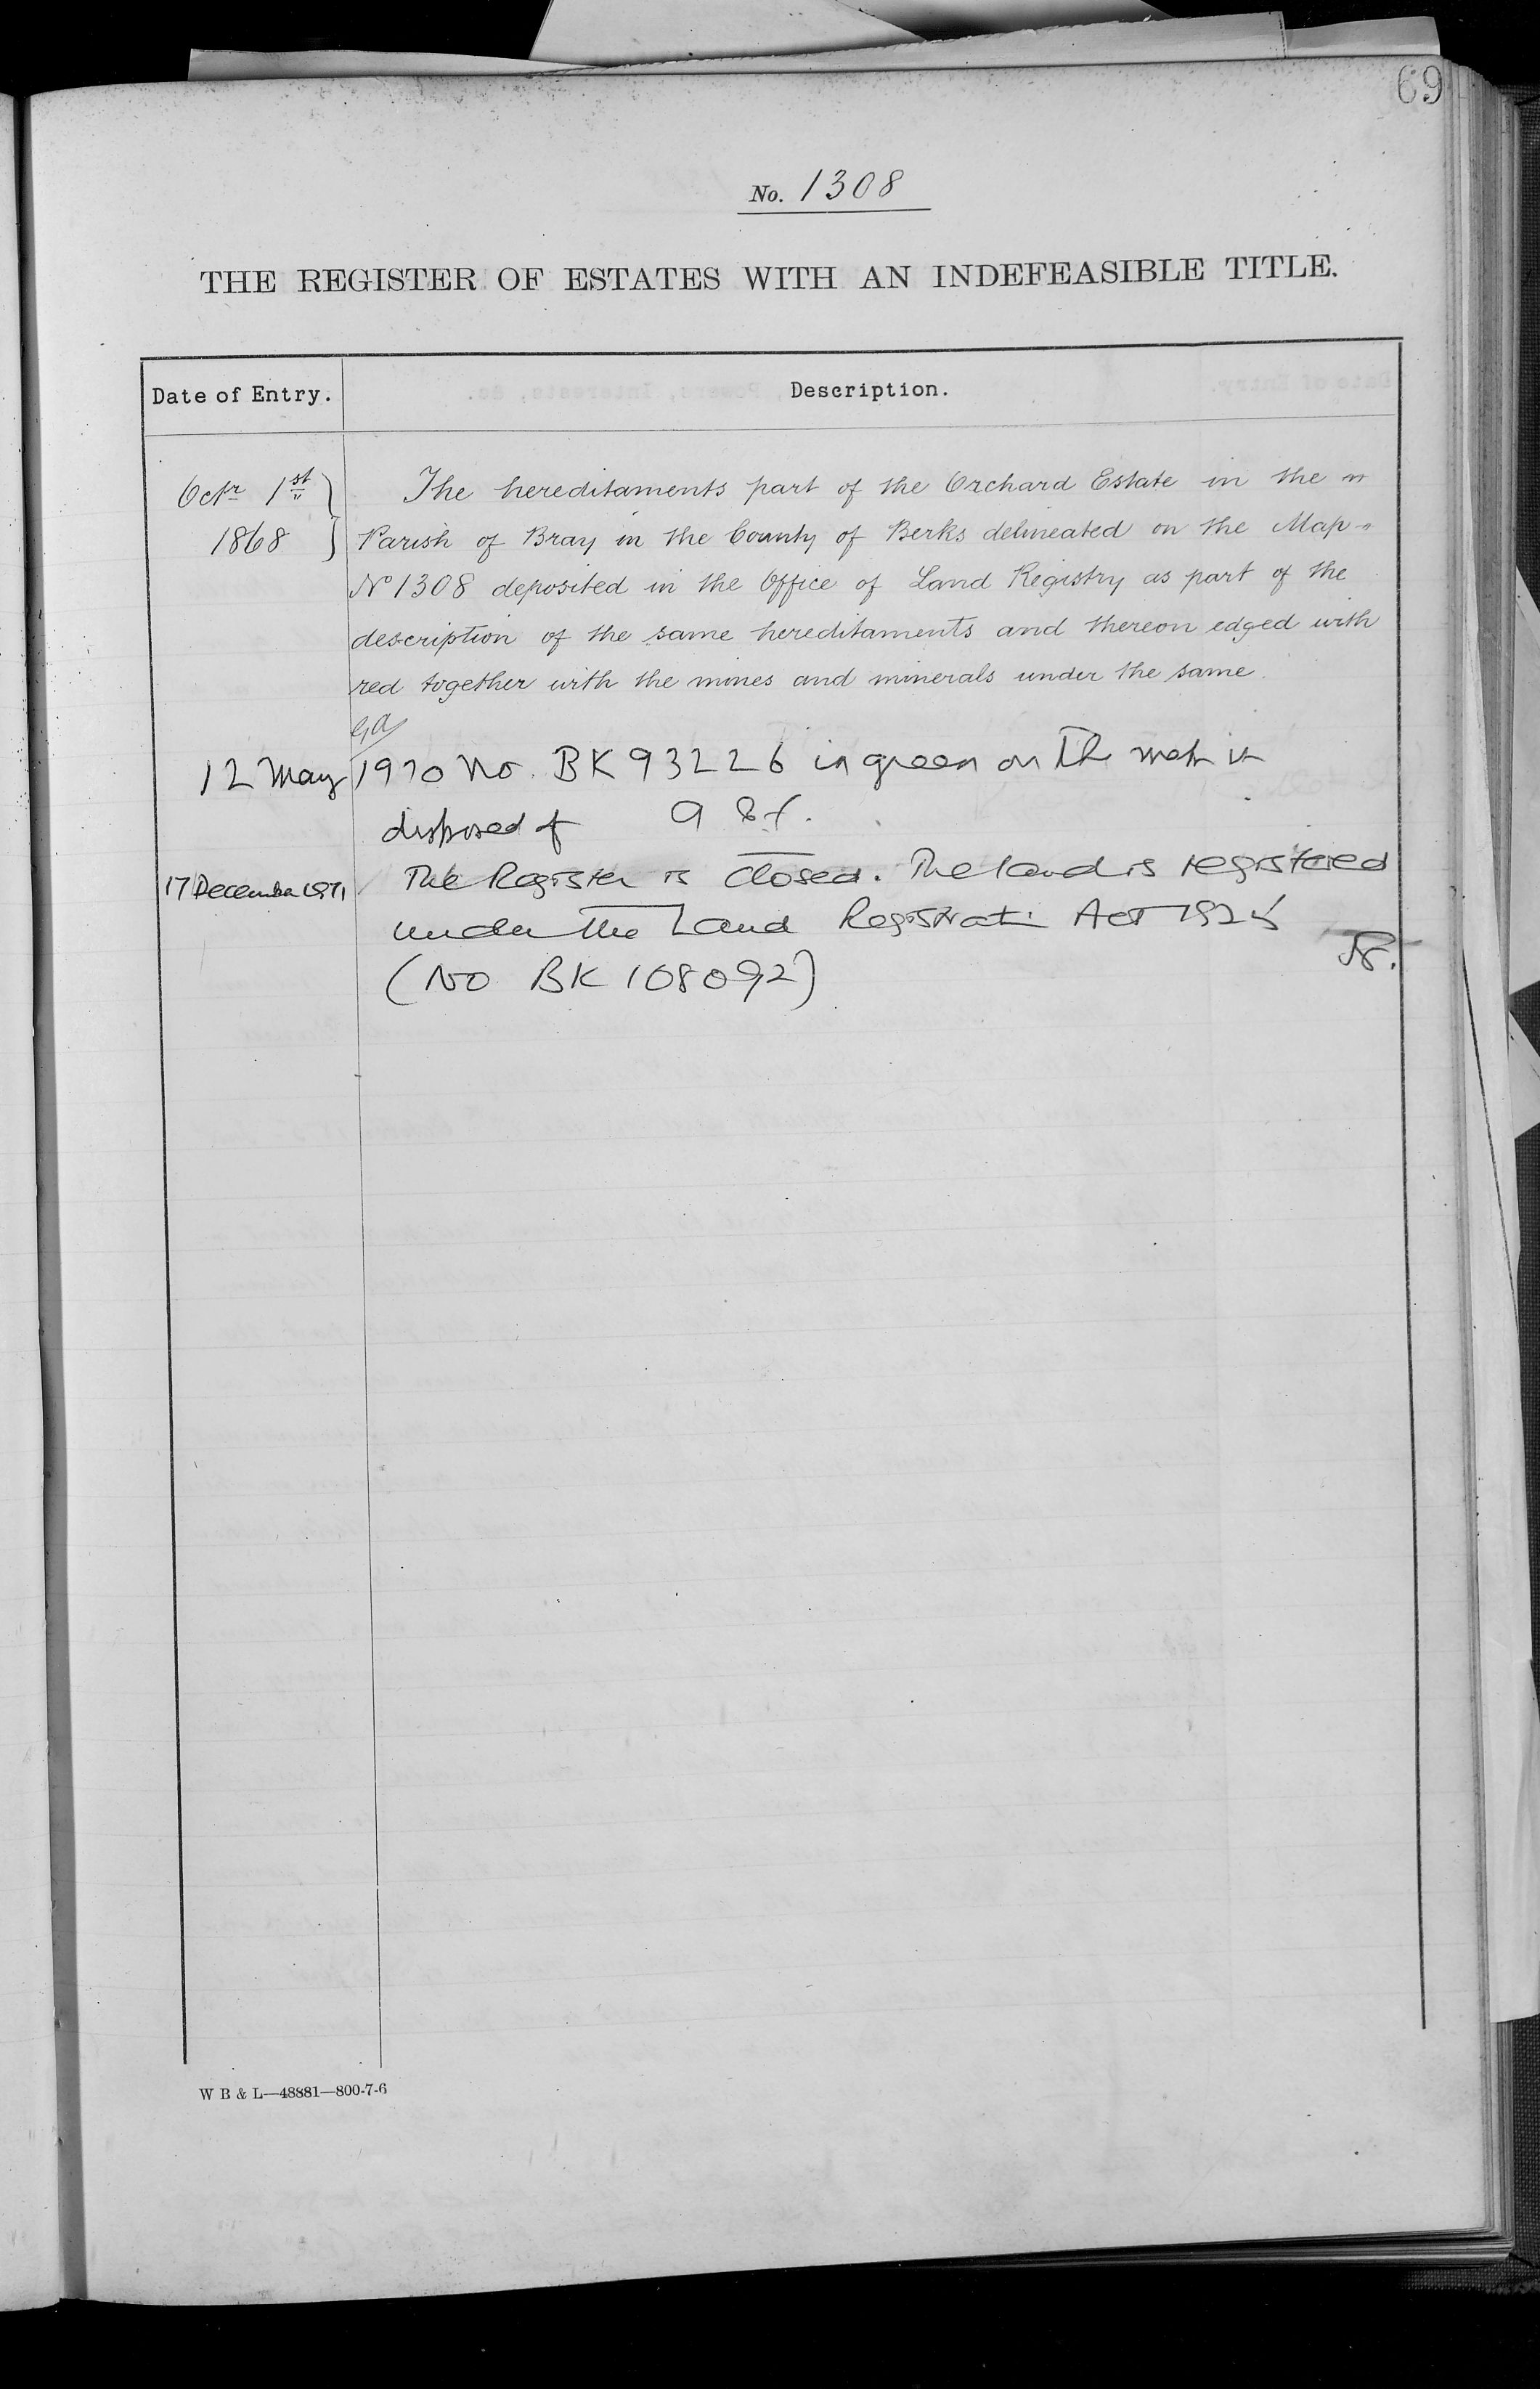 69
No. 1308
THE REGISTER OF ESTATES WITH AN INDEFEASIBLE TITLE.
Date of Entry. Description.
Octr 1st 1868
The hereditaments part of the Orchard Estate in the
Parish of Bray in the County of Berks delineated on the Map
No 1308 deposited in the Office of Land Registry as part of the
description of the same hereditaments and thereon edged with
red together with the mines and minerals under the same.
12 May 1970 No. BK 93226 in green on the map is
disposed of
17 December 1971 The Register is closed. The land is registered
under the Land Registrati Act 1925
(No BK 108092)
W B & L—48881—800-7-6